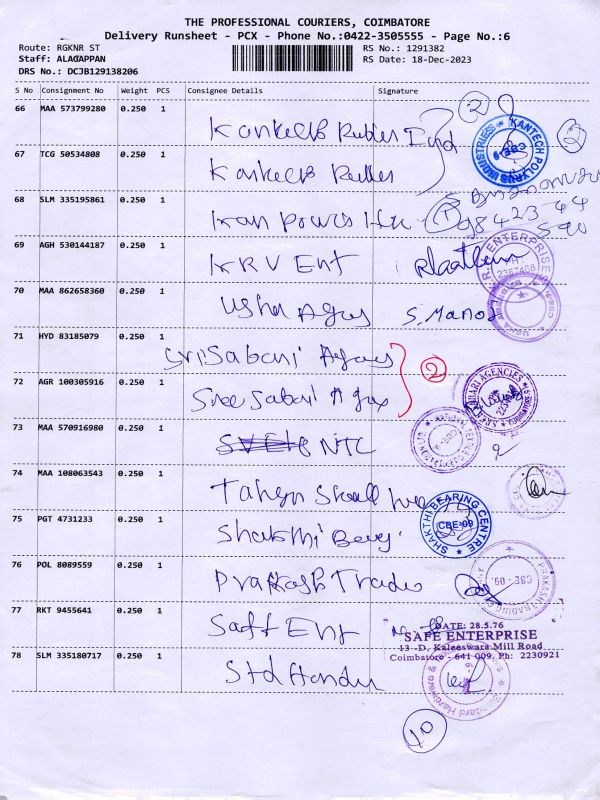 THE PROFESSIONAL COURIERS, COIMBATORE
Delivery Runsheet - PCX - Phone No.:0422-3505555 - Page No.:6
Route: RGKNR ST RS No.: 1291382
Staff: ALAGAPPAN RS Date: 18-Dec-2023
DRS No.: DCJB129138206
S No Consignment No Weight PCS Consignee Details Signature
66 MAA 573799280 0.250 1
KANTECH POLYRUB INDUSTRIES
CBE-19
2
67 TCG 50534808 0.250 1
68 SLM 335195861 0.250 1
1
98423-44
69 AGH 530144187 0.250 1 KRV Ent
ENTERPRISE
70 MAA 862658360 0.250 1 Usha Agys S. Manoj
71 HYD 83185079 0.250 1 Sri Sabari Agays
2
72 AGR 100305916 0.250 1 Sree Sabari Agys
AGENCIES
73 MAA 570916980 0.250 1 NTC
74 MAA 108063543 0.250 1
75 PGT 4731233 0.250 1 Shakthi Beng
SHAKTHI BEARING CENTRE
CBE-09
76 POL 8089559 0.250 1 Prakash Trades
PRAKASH TRADING
CBE - 09.
77 RKT 9455641 0.250 1 Saff Ent
DATE: 28.5.76
SAFE ENTERPRISE
13 -D, Kaleeswara Mill Road
Coimbatore - 641 009. Ph: 2230921
78 SLM 335180717 0.250 1
Standard Hardware &
40